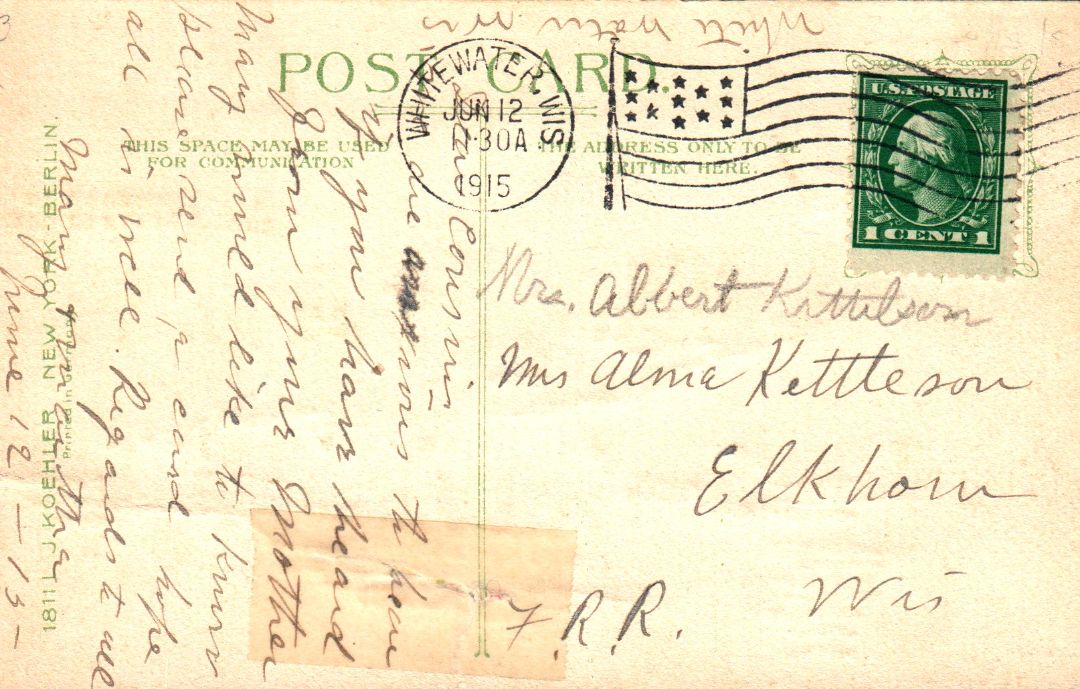 White water Wis
POST CARD.
WHITEWATER, WIS.
JUN 12
1:30A
1915
U.S. POSTAGE
1 CENT 1
THIS SPACE MAY BE USED
FOR COMMUNICATION
THE ADDRESS ONLY TO BE
WRITTEN HERE.
Mrs. Albert Kittilson
Mrs Alma Kettleson
Elkhorn
F. R. R. Wis
Dear Cousin
am anxious to hear
if you have heard
from your Mother
Mary would like to know
please send a card hope
all is well. Regards to all
Mary
June 12 - 15 -
1811 L. J. KOEHLER, NEW YORK - BERLIN.
Printed in Germany